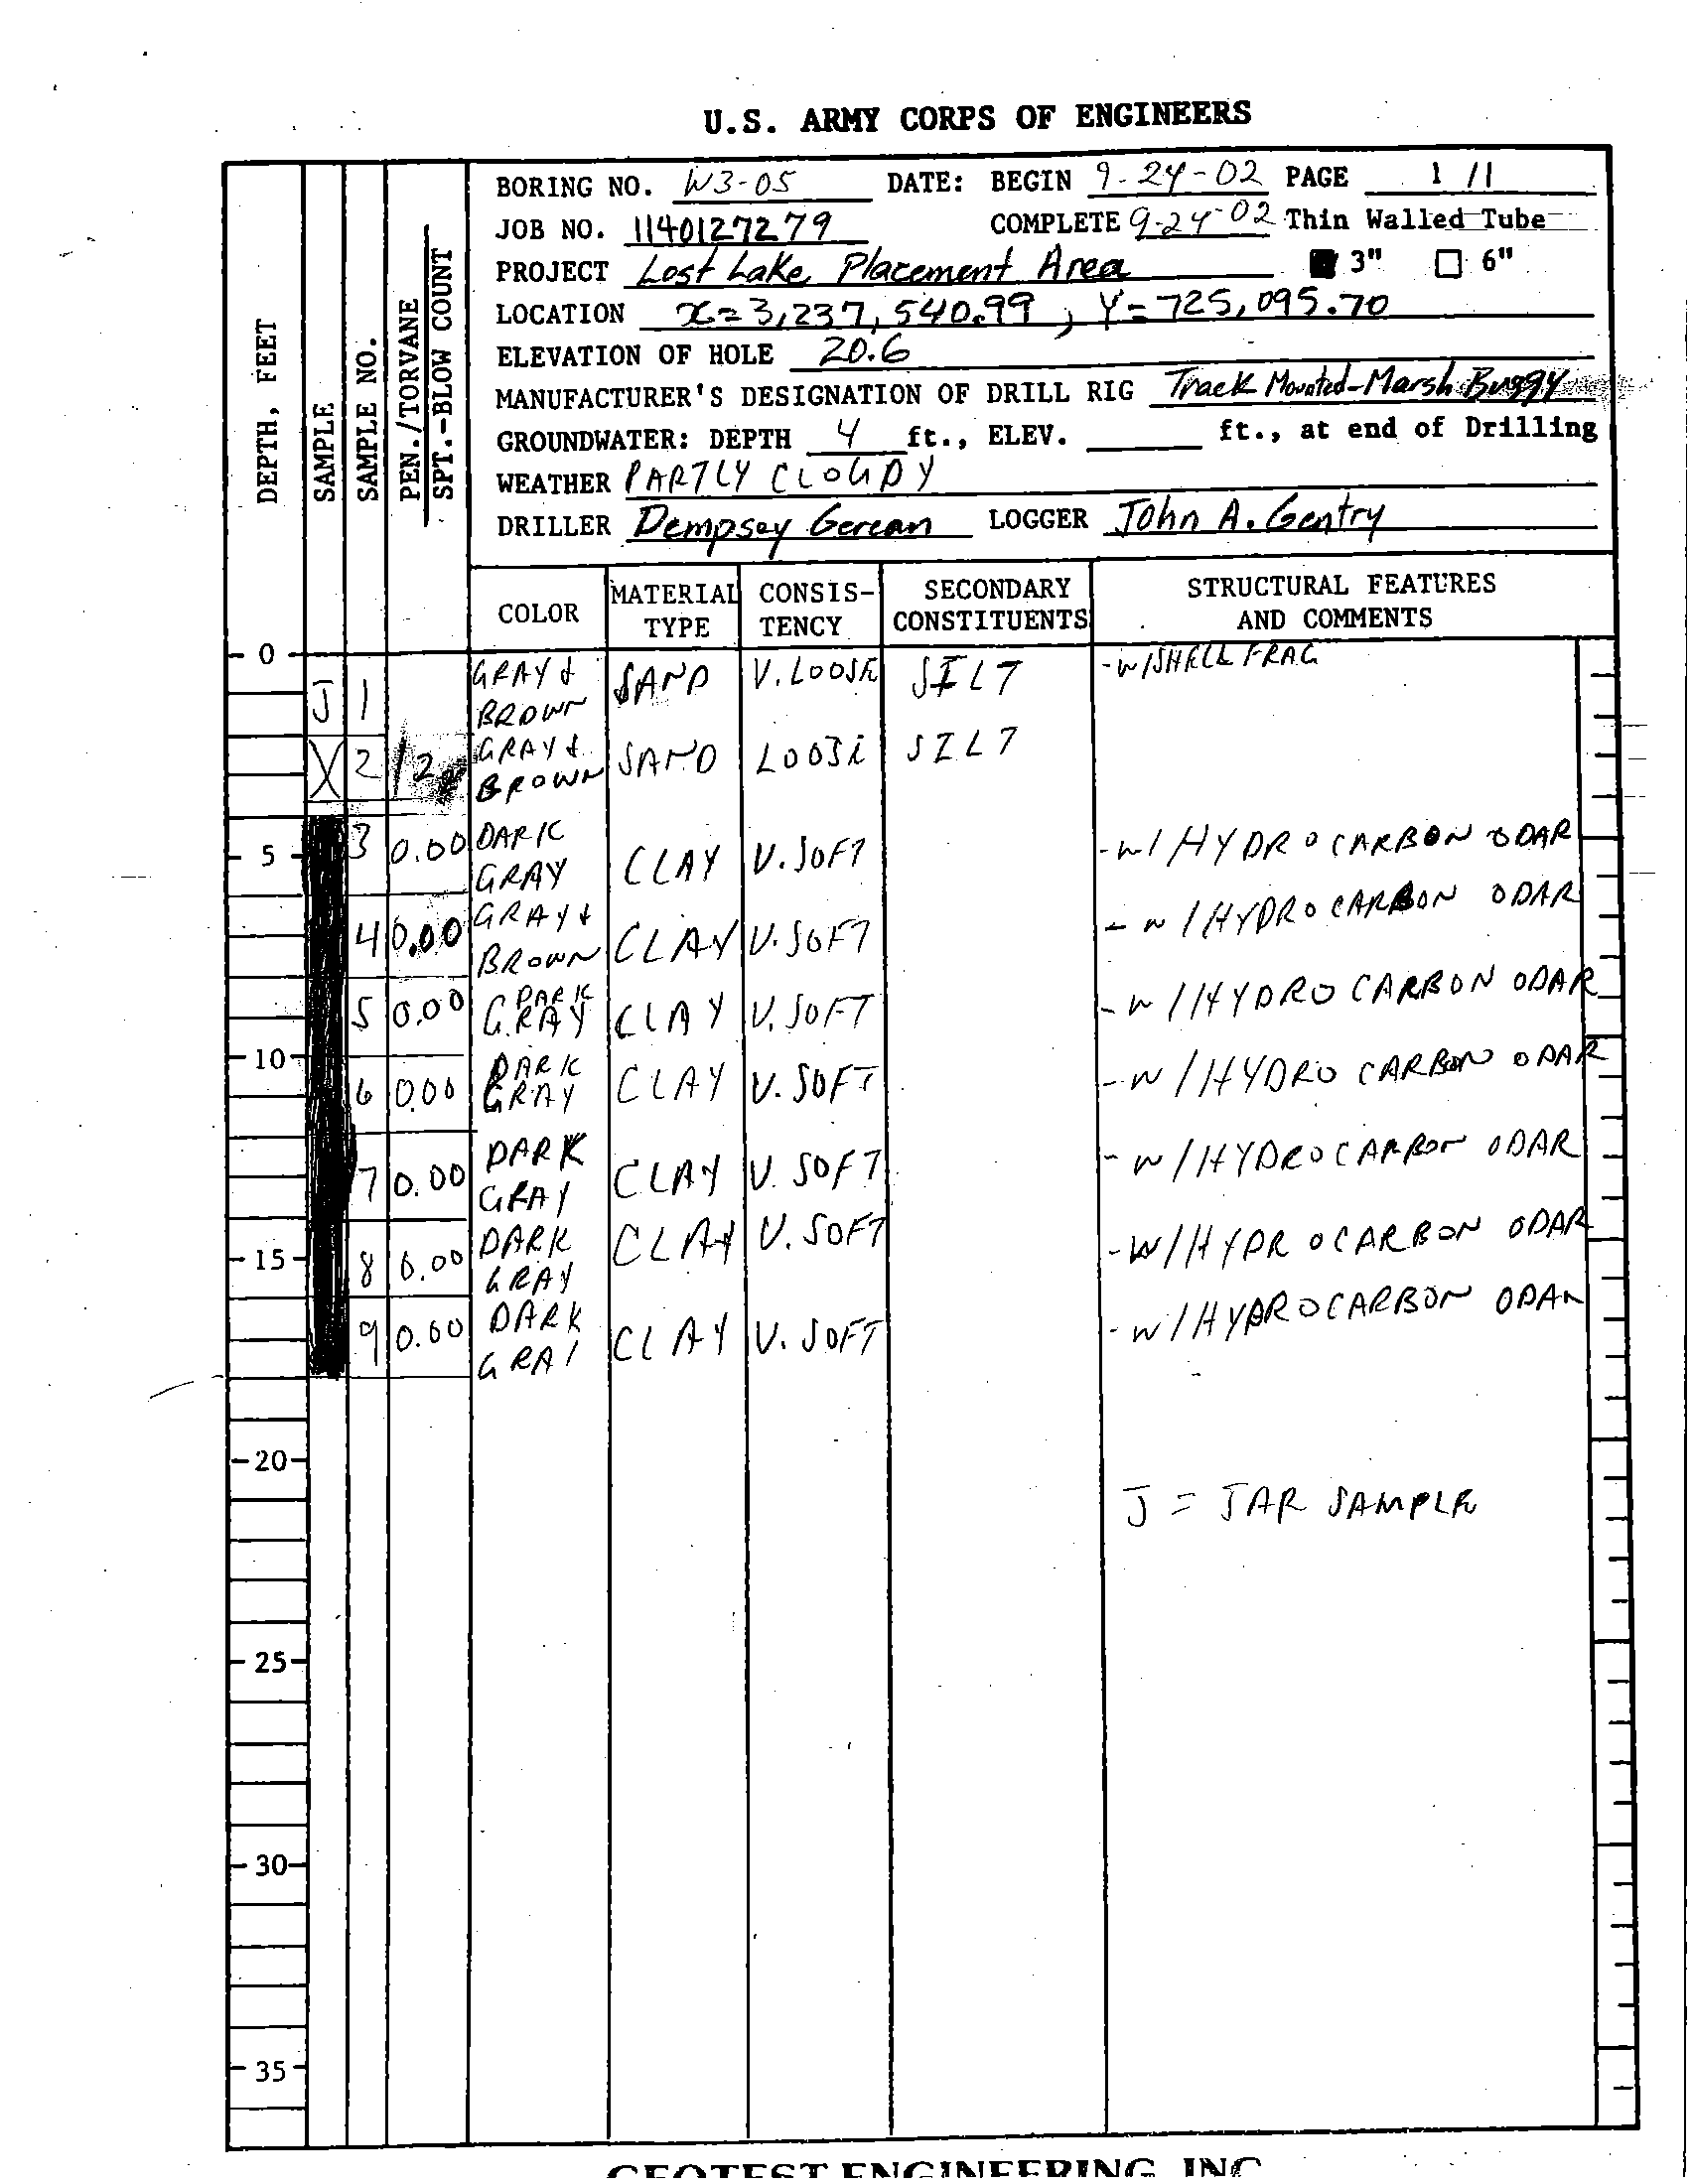 U.S. ARMY CORPS OF ENGINEERS
BORING NO. W3-05 DATE: BEGIN 9-24-02 PAGE 1/1
JOB NO. 1140127279 COMPLETE 9-24-02 Thin Walled Tube
PROJECT Lost Lake Placement Area 3" 6"
LOCATION X=3,237,540.99, Y=725,095.70
ELEVATION OF HOLE 20.6
MANUFACTURER'S DESIGNATION OF DRILL RIG Track Mounted-Marsh Buggy
GROUNDWATER: DEPTH 4 ft., ELEV. ft., at end of Drilling
WEATHER PARTLY CLOUDY
DRILLER Dempsey Gercan LOGGER John A. Gentry
DEPTH, FEET
SAMPLE
SAMPLE NO.
PEN./TORVANE
SPT.-BLOW COUNT
COLOR MATERIAL TYPE CONSIS-TENCY SECONDARY CONSTITUENTS STRUCTURAL FEATURES AND COMMENTS
0
J 1 GRAY & BROWN SAND V. LOOSE SILT -W/SHELL FRAG
X 2 GRAY & BROWN SAND LOOSE SILT
5 3 0.00 DARK GRAY CLAY V. SOFT -W/ HYDROCARBON ODAR
4 0.00 GRAY & BROWN CLAY V. SOFT - W/HYDROCARBON ODAR
5 0.00 DARK GRAY CLAY V. SOFT -W/HYDROCARBON ODAR
10
6 0.00 DARK GRAY CLAY V. SOFT -W/HYDROCARBON ODAR
7 0.00 DARK GRAY CLAY V. SOFT -W/HYDROCARBON ODAR
15 8 0.00 DARK GRAY CLAY V. SOFT -W/HYDROCARBON ODAR
9 0.00 DARK GRAY CLAY V. SOFT -W/HYDROCARBON ODAR
20
J = JAR SAMPLE
25
30
35
GEOTEST ENGINEERING, INC